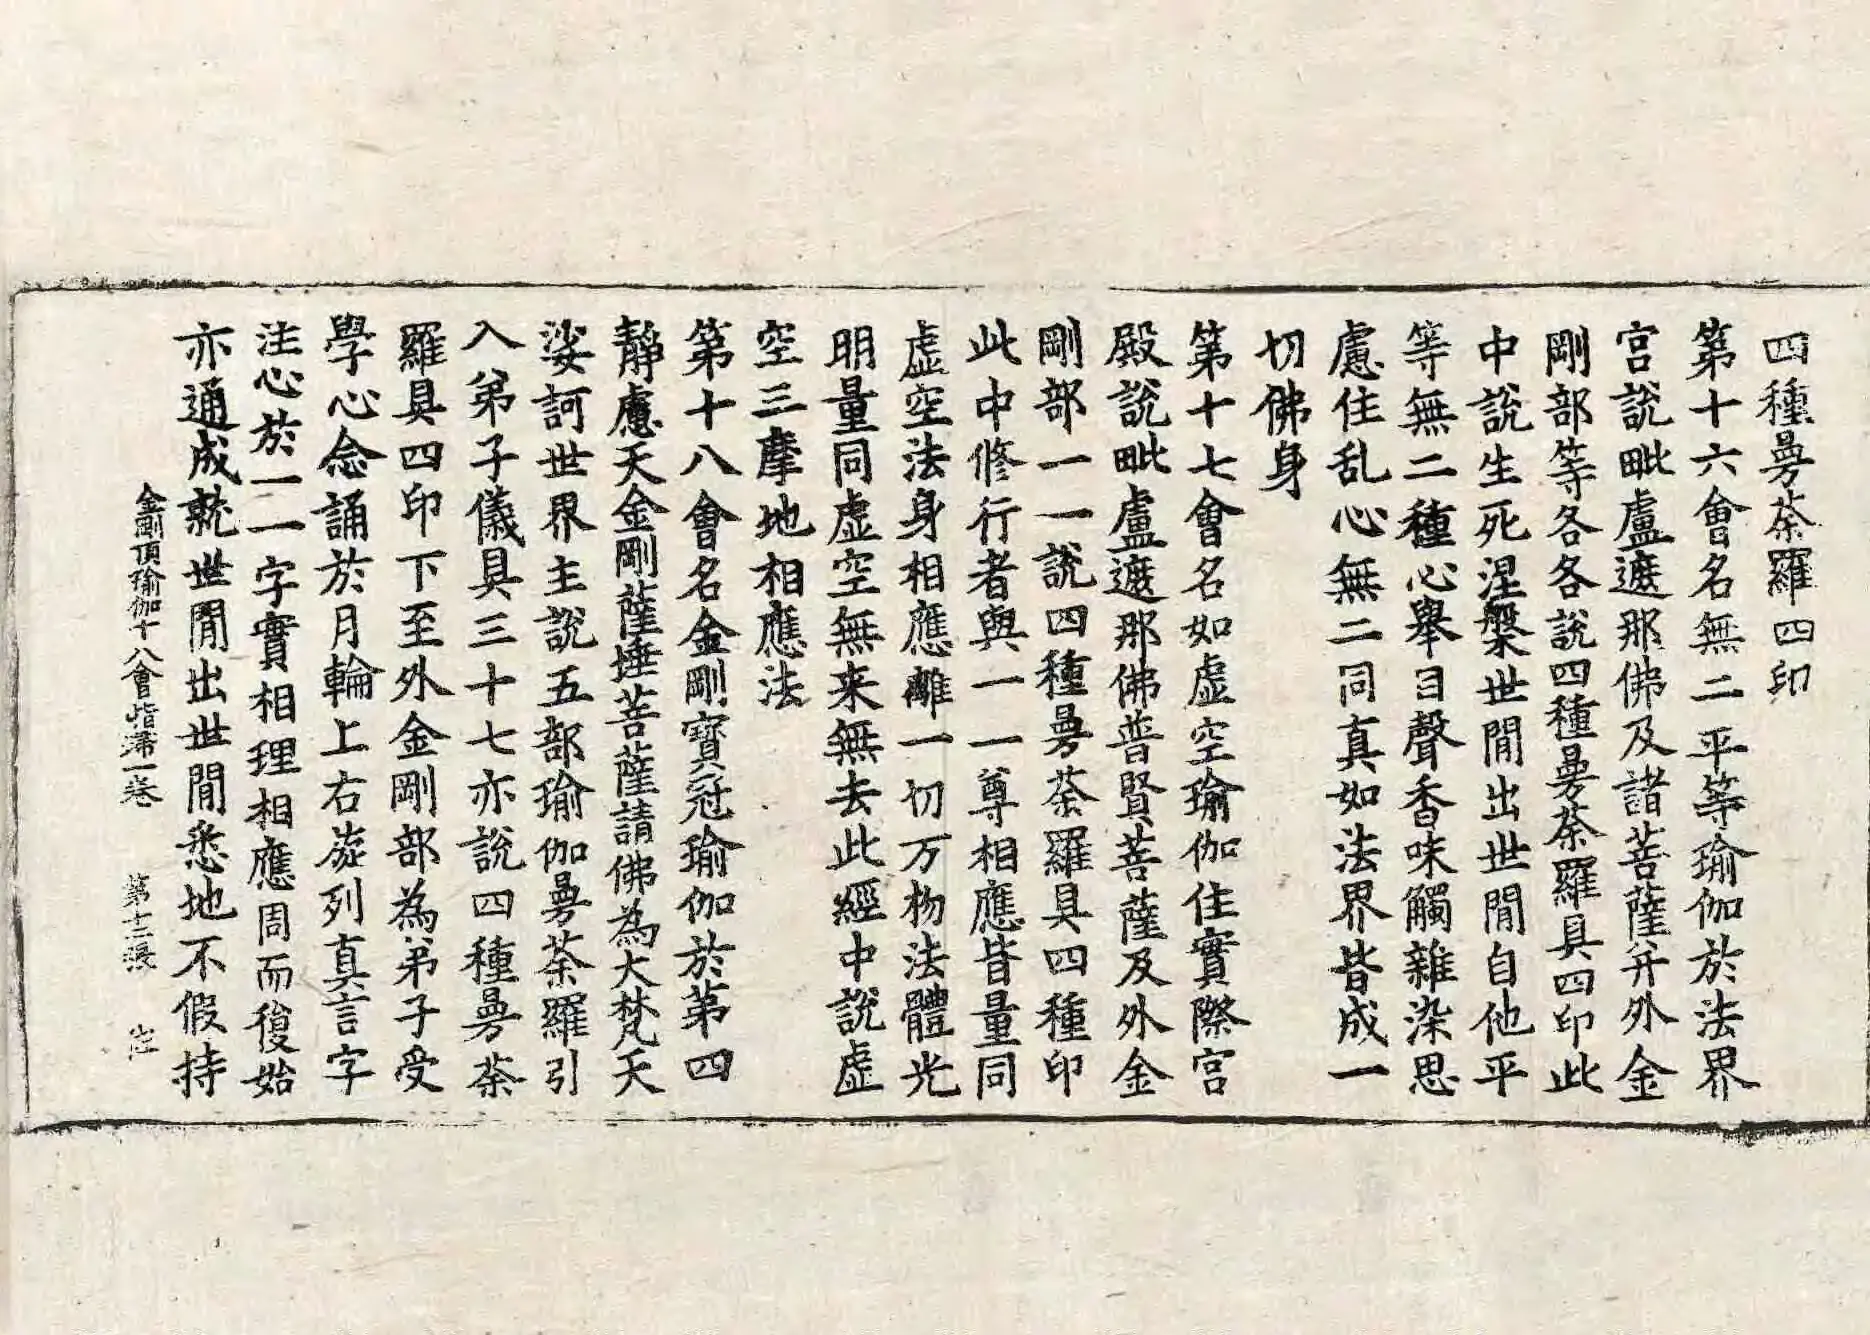 四種曼荼羅四印
第十六會名無二平等瑜伽於法界
宮說毗盧遮那佛及諸菩薩并外金
剛部等各各說四種曼荼羅具四印此
中說生死涅槃世間出世間自他平
等無二種心舉目聲香味觸雜染思
慮住乱心無二同真如法界皆成一
切佛身
第十七會名如虛空瑜伽住實際宮
殿說毗盧遮那佛普賢菩薩及外金
剛部一一說四種曼荼羅具四種印
此中修行者與一一尊相應皆量同
虛空法身相應離一切万物法體光
明量同虛空無来無去此經中說虛
空三摩地相應法
第十八會名金剛寶冠瑜伽於第四
靜慮天金剛薩埵菩薩請佛為大梵天
娑訶世界主說五部瑜伽曼荼羅引
入弟子儀具三十七亦說四種曼荼
羅具四印下至外金剛部為弟子受
學心念誦於月輪上右旋列真言字
注心於一一字實相理相應周而復始
亦通成就世間出世間悉地不假持
金剛頂瑜伽十八會指歸一卷 第十三張